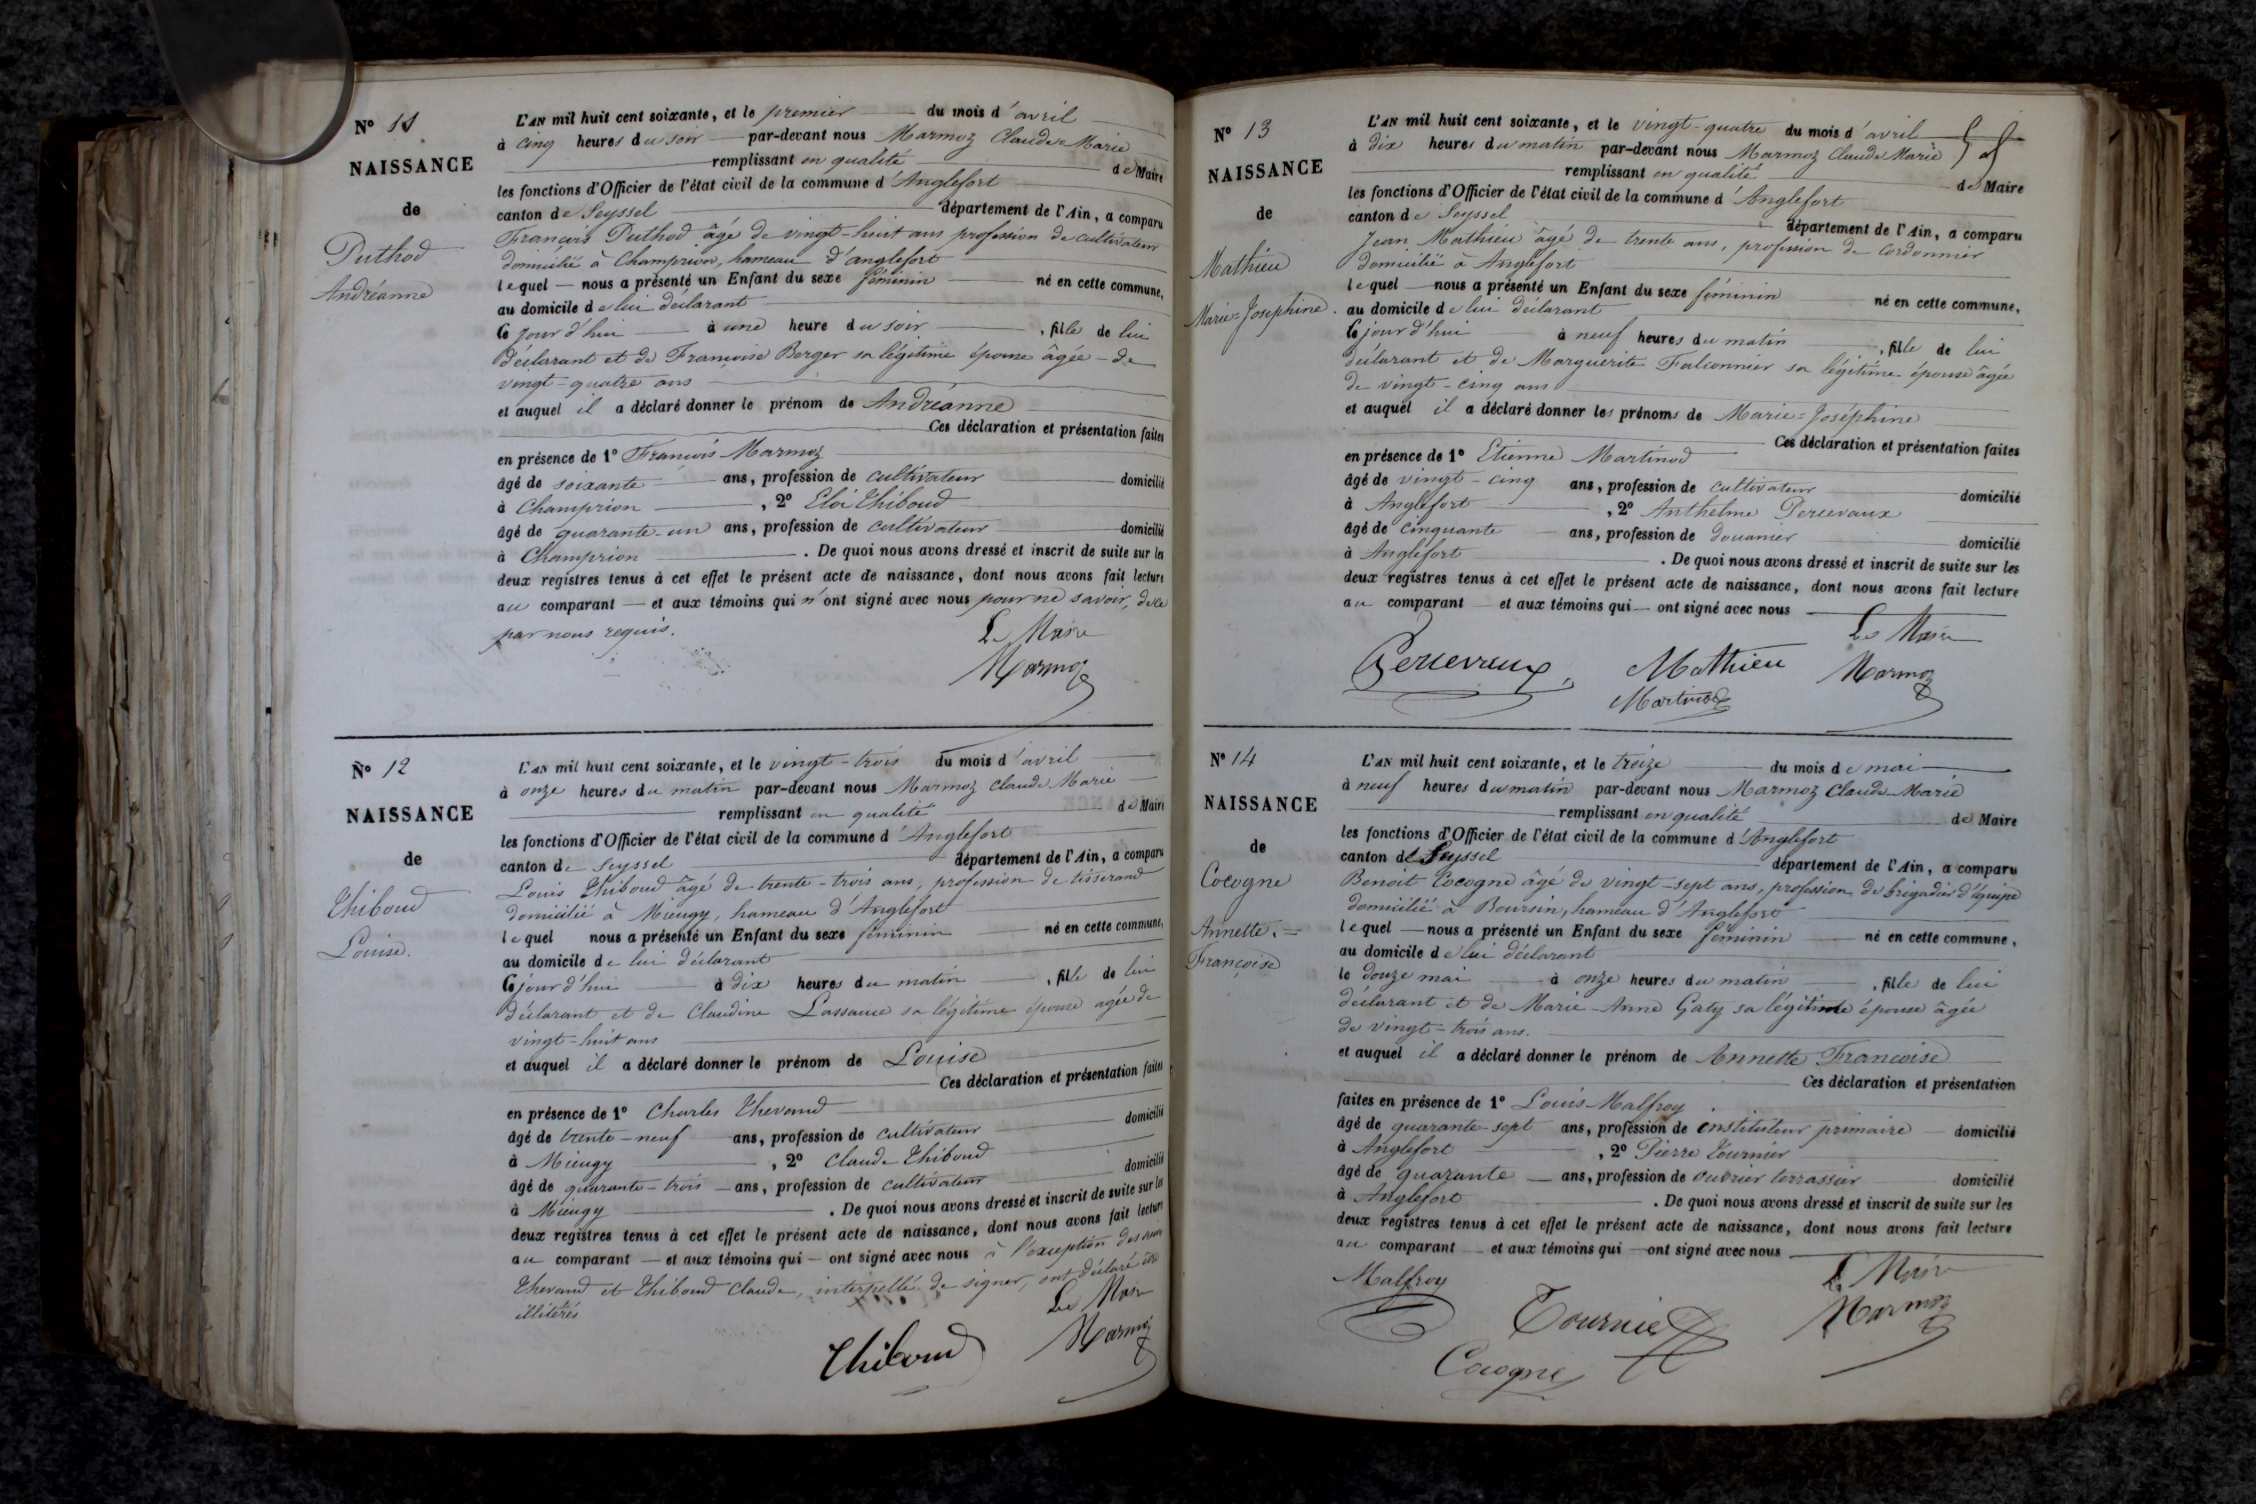 N° 11
NAISSANCE
de
Puthod
Andréanne
L'AN mil huit cent soixante, et le premier du mois d'avril
à cinq heures du soir par-devant nous Marmoz Claude-Marie
remplissant en qualité de Maire
les fonctions d'Officier de l'état civil de la commune d'Anglefort
canton de Seyssel département de l'Ain, a comparu
François Puthod âgé de vingt-huit ans profession de cultivateur
domicilié à Champrion, hameau d'anglefort
lequel — nous a présenté un Enfant du sexe féminin né en cette commune,
au domicile de lui déclarant
Ce jour d'hui à une heure du soir, fille de lui
déclarant et de Françoise Berger sa légitime épouse âgée de
vingt-quatre ans
et auquel il a déclaré donner le prénom de Andréanne
Ces déclaration et présentation faites
en présence de 1° François Marmoz
âgé de soixante ans, profession de cultivateur domicilié
à Champrion, 2° Eloi Thiboud
âgé de quarante-un ans, profession de cultivateur domicilié
à Champrion. De quoi nous avons dressé et inscrit de suite sur les
deux registres tenus à cet effet le présent acte de naissance, dont nous avons fait lecture
au comparant — et aux témoins qui n'ont signé avec nous pour ne savoir, de ce
par nous requis.
Le Maire
Marmoz
N° 12
NAISSANCE
de
Thiboud
Louise.
L'AN mil huit cent soixante, et le vingt-trois du mois d'avril
à onze heures du matin par-devant nous Marmoz Claude Marie
remplissant en qualité de Maire
les fonctions d'Officier de l'état civil de la commune d'Anglefort
canton de Seyssel département de l'Ain, a comparu
Louis Thiboud âgé de trente-trois ans, profession de tisserand
domicilié à Mieugy, hameau d'Anglefort
lequel nous a présenté un Enfant du sexe féminin né en cette commune,
au domicile de lui déclarant
Ce jour d'hui à dix heures du matin, fille de lui
déclarant et de Claudine Lassauce sa légitime épouse agée de
vingt-huit ans
et auquel il a déclaré donner le prénom de Louise
Ces déclaration et présentation faites
en présence de 1° Charles Thevand
âgé de trente-neuf ans, profession de cultivateur domicilié
à Mieugy, 2° Claude Thiboud
âgé de quarante-trois — ans, profession de cultivateur domicilié
à Mieugy. De quoi nous avons dressé et inscrit de suite sur les
deux registres tenus à cet effet le présent acte de naissance, dont nous avons fait lecture
au comparant — et aux témoins qui — ont signé avec nous à l'exception des
Thevand et Thiboud Claude, interpellé de signer, ont déclaré être
illitérés
Le Maire
Marmoz
Thiboud
N° 13
NAISSANCE
de
Mathieu
Marie-Joséphine.
L'AN mil huit cent soixante, et le vingt-quatre du mois d'avril
à dix heures du matin par-devant nous Marmoz Claude Marie
remplissant en qualité de Maire
les fonctions d'Officier de l'état civil de la commune d'Anglefort
canton de Seyssel département de l'Ain, a comparu
Jean Mathieu âgé de trente ans, profession de cordonnier
domicilié à Anglefort
lequel — nous a présenté un Enfant du sexe féminin né en cette commune,
au domicile de lui déclarant
Ce jour d'hui à neuf heures du matin, fille de lui
déclarant et de Marguerite Falconnier sa légitime épouse âgée
de vingt-cinq ans
et auquel il a déclaré donner les prénoms de Marie-Joséphine
Ces déclaration et présentation faites
en présence de 1° Etienne Martinod
âgé de vingt-cinq ans, profession de cultivateur domicilié
à Anglefort, 2° Anthelme Percevaux
âgé de cinquante ans, profession de douanier domicilié
à Anglefort. De quoi nous avons dressé et inscrit de suite sur les
deux registres tenus à cet effet le présent acte de naissance, dont nous avons fait lecture
au comparant — et aux témoins qui — ont signé avec nous
Le Maire
Percevaux Mathieu Marmoz
Martinod
N° 14
NAISSANCE
de
Cocogne
Annette.
Françoise
L'AN mil huit cent soixante, et le treize du mois de mai
à neuf heures du matin par-devant nous Marmoz Claude-Marie
remplissant en qualité de Maire
les fonctions d'Officier de l'état civil de la commune d'Anglefort
canton de Seyssel département de l'Ain, a comparu
Benoit Cocogne âgé de vingt-sept ans, profession de brigadier d'équipe
domicilié à Boursin, hameau d'Anglefort
lequel — nous a présenté un Enfant du sexe féminin né en cette commune,
au domicile de lui déclarant
le douze mai à onze heures du matin, fille de lui
déclarant et de Marie-Anne Gaty sa légitime épouse âgée
de vingt-trois ans.
et auquel il a déclaré donner le prénom de Annette Françoise
Ces déclaration et présentation
faites en présence de 1° Louis Malfroy
âgé de quarante-sept ans, profession de instituteur primaire domicilié
à Anglefort, 2° Pierre Tournier
âgé de quarante — ans, profession de ouvrier terrassier domicilié
à Anglefort. De quoi nous avons dressé et inscrit de suite sur les
deux registres tenus à cet effet le présent acte de naissance, dont nous avons fait lecture
au comparant — et aux témoins qui — ont signé avec nous
Le Maire
Malfroy Tournier Marmoz
Cocogne